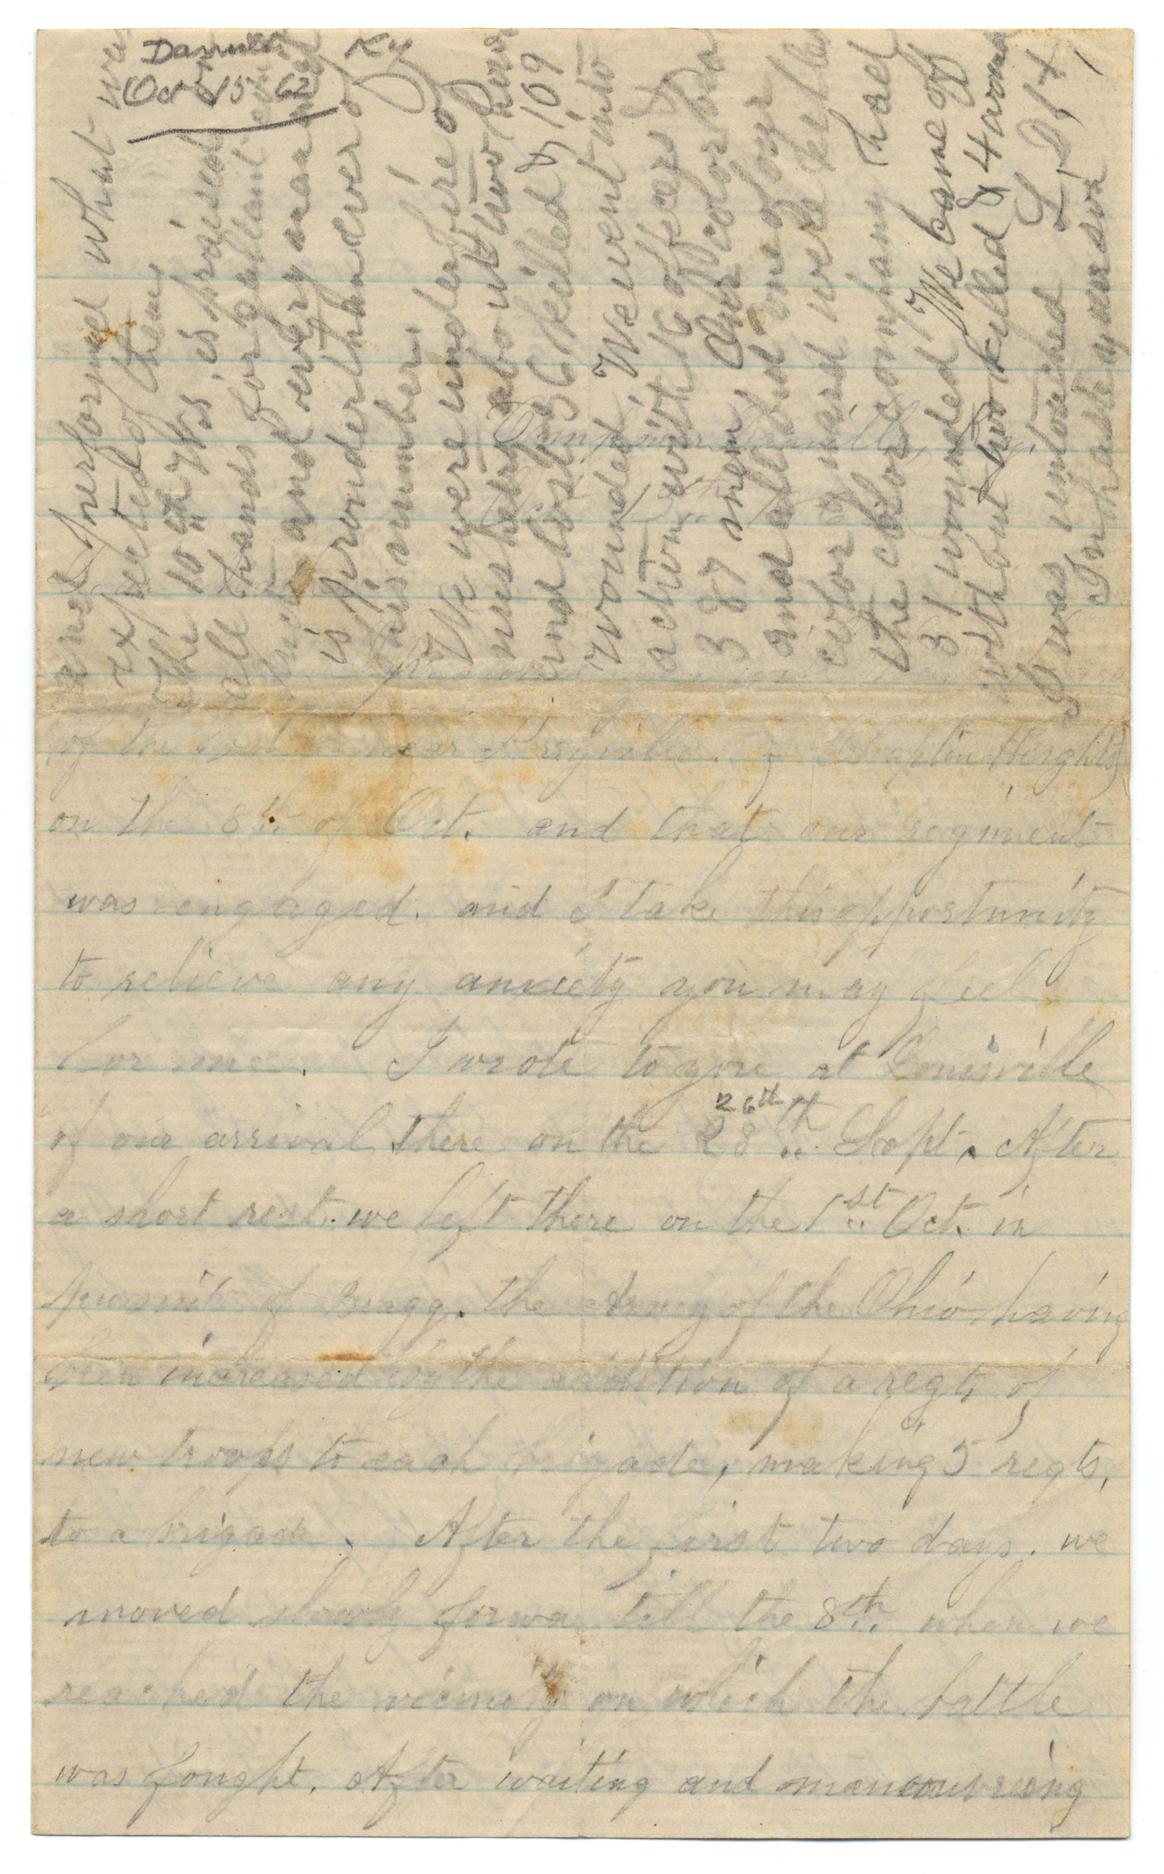 Danville Ky
Oct 15 62
Camp near Danville, Ky.
of the near Perryville. Chaplin Heights)
on the 8th of Oct. and that our regiment
was engaged. and I take this opportunity
to relieve any anxiety you may feel
for me. I wrote to you at Louisville
26th
of our arrival there on the 28th Sept. After
a short rest. we left there on the 1st Oct. in
pursuit of Bragg. the Army of the Ohio having
been increased by the addition of a regt. of
new troops to each brigade, making 5 regts,
to a brigade. After the first two days. we
moved slowly forwa till the 8th when we
reached the vicinity on which the battle
was fought. After waiting and manouvreing
and performed what was
expected of them
The 10th Wis. is praised on
all hands for gallant
and every man
is prouder than ever of
his number.
We were under fire of
musketry about two hours
and lost 36 killed & 109
wounded. We went into
action with 16 officers &
387 men. Our color
and all but one of our
color guard were killed
the color company had
31 wounded. We came of
without two killed & 4 wound
I was untouched L D 14
In haste yours